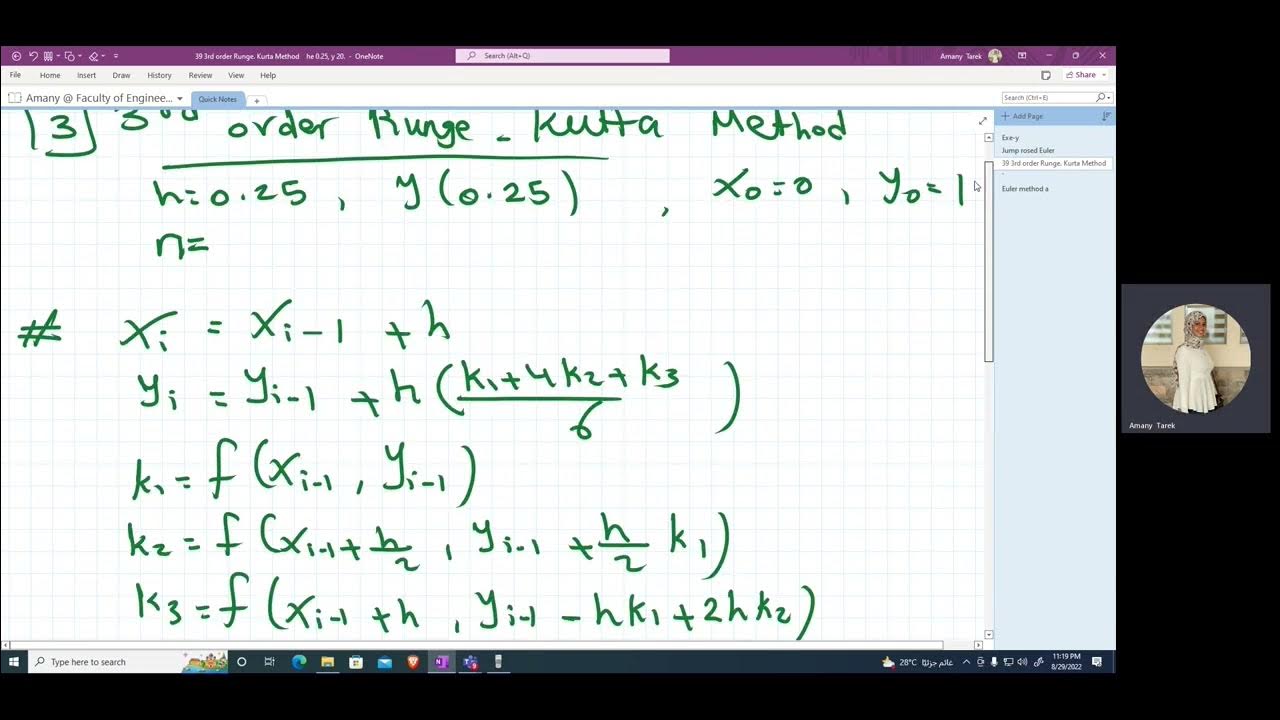 39 3rd order Runge. Kurta Method he 0.25, y 20. - OneNote
Search (Alt+Q)
Amany Tarek
File Home Insert Draw History Review View Help
Share
Amany @ Faculty of Enginee...
Quick Notes
Search (Ctrl+E)
Add Page
Exe-y
Jump rosed Euler
39 3rd order Runge. Kurta Method
Euler method a
[3] 3rd order Runge - Kutta Method
h=0.25, y(0.25), x0=0, y0=1
n=
# xi = xi-1 + h
yi = yi-1 + h (k1+4k2+k3 / 6)
k1 = f (xi-1, yi-1)
k2 = f (xi-1 + h/2, yi-1 + h/2 k1)
k3 = f (xi-1 + h, yi-1 - hk1 + 2hk2)
Amany Tarek
Type here to search
28°C غائم جزئيًا
11:19 PM
8/29/2022